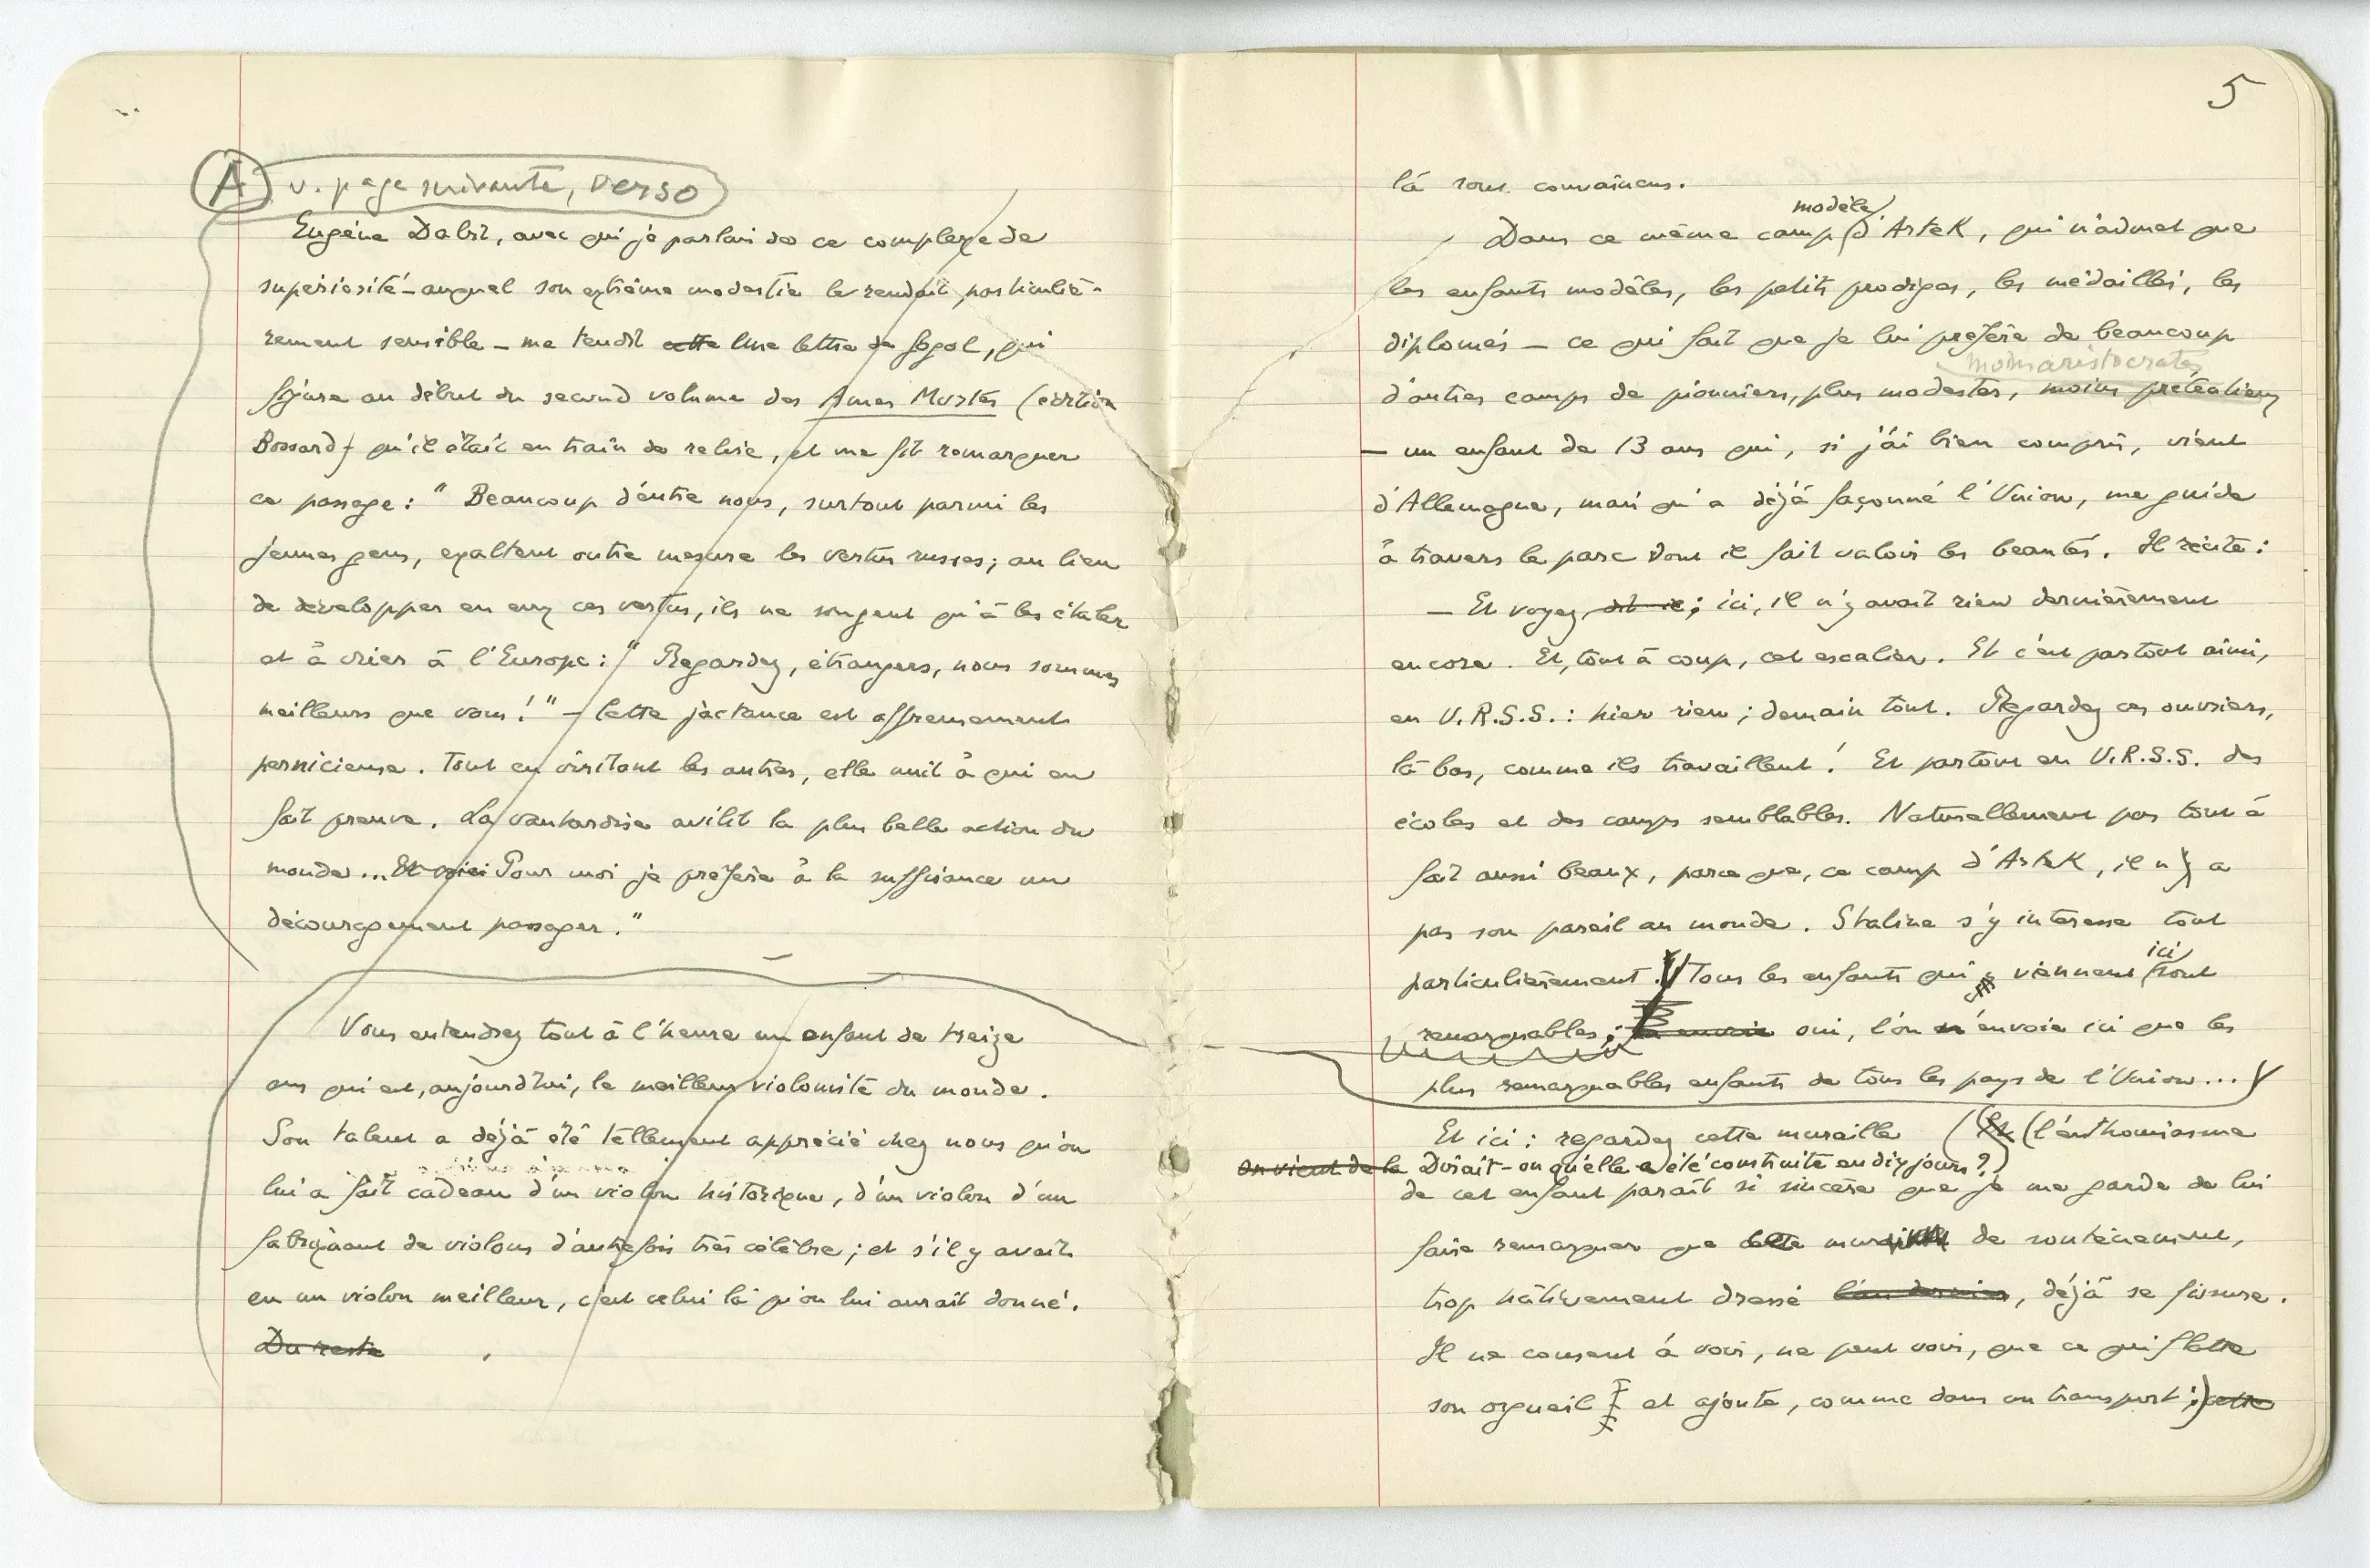 A v. page suivante, verso
Eugène Dabit, avec qui je parlais de ce complexe de
supériorité – auquel son extrême modestie le rendait particuliè-
rement sensible – me tendit cette une lettre de Gogol, qui
figure au début du second volume des Ames Mortes (édition
Bossard) qu'il était en train de relire, et me fit remarquer
ce passage : " Beaucoup d'entre nous, surtout parmi les
jeunes gens, exaltent outre mesure les vertus russes ; au lieu
de développer en eux ces vertus, ils ne songent qu'à les étaler
et à crier à l'Europe : " Regardez, étrangers, nous sommes
meilleurs que vous ! " – Cette jactance est affreusement
pernicieuse. Tout en irritant les autres, elle nuit à qui en
fait preuve. La vantardise avilit la plus belle action du
monde... Et voici Pour moi je préfère à la suffisance un
découragement passager."
Vous entendrez tout à l'heure un enfant de treize
ans qui est, aujourd'hui, le meilleur violoniste du monde.
Son talent a déjà été tellement apprécié chez nous qu'on
lui a fait cadeau d'un violon historique, d'un violon d'un
fabriquant de violons d'autrefois très célèbre ; et s'il y avait
eu un violon meilleur, c'est celui là qu'on lui aurait donné.
Du reste
5
là sont convaincus.
modèle
Dans ce même camp d'Artek, qui n'admet que
les enfants modèles, les petits prodiges, les médaillés, les
diplomés – ce qui fait que je lui préfère de beaucoup
moins aristocrates
d'autres camps de pionniers, plus modestes, moins prétentieux
– un enfant de 13 ans qui, si j'ai bien compris, vient
d'Allemagne, mais qu'a déjà façonné l'Union, me guide
à travers le parc dont il fait valoir les beautés. Il récite :
– Et voyez, dit-il ; ici, il n'y avait rien dernièrement
encore. Et, tout à coup, cet escalier. Et c'est partout ainsi,
en U.R.S.S. : hier rien ; demain tout. Regardez ces ouvriers,
là-bas, comme ils travaillent ! Et partout en U.R.S.S. des
écoles et des camps semblables. Naturellement pas tout à
fait aussi beaux, parce que, ce camp d'Artek, il n'y a
pas son pareil au monde. Staline s'y intéresse tout
ici
particulièrement. Tous les enfants qui viennent sont
remarquables ; on envoie oui, l'on n'envoie ici que les
plus remarquables enfants de tous les pays de l'Union...
Et ici : regardez cette muraille (l'enthousiasme
On vient de la Dirait-on qu'elle a été construite en dix jours ?)
de cet enfant paraît si sincère que je me garde de lui
faire remarquer que cette muraille de soutènement,
trop hâtivement dressé l'an dernier, déjà se fissure.
Il ne consent à voir, ne peut voir, que ce qui flatte
son orgueil et ajoute, comme dans un transport ; cette